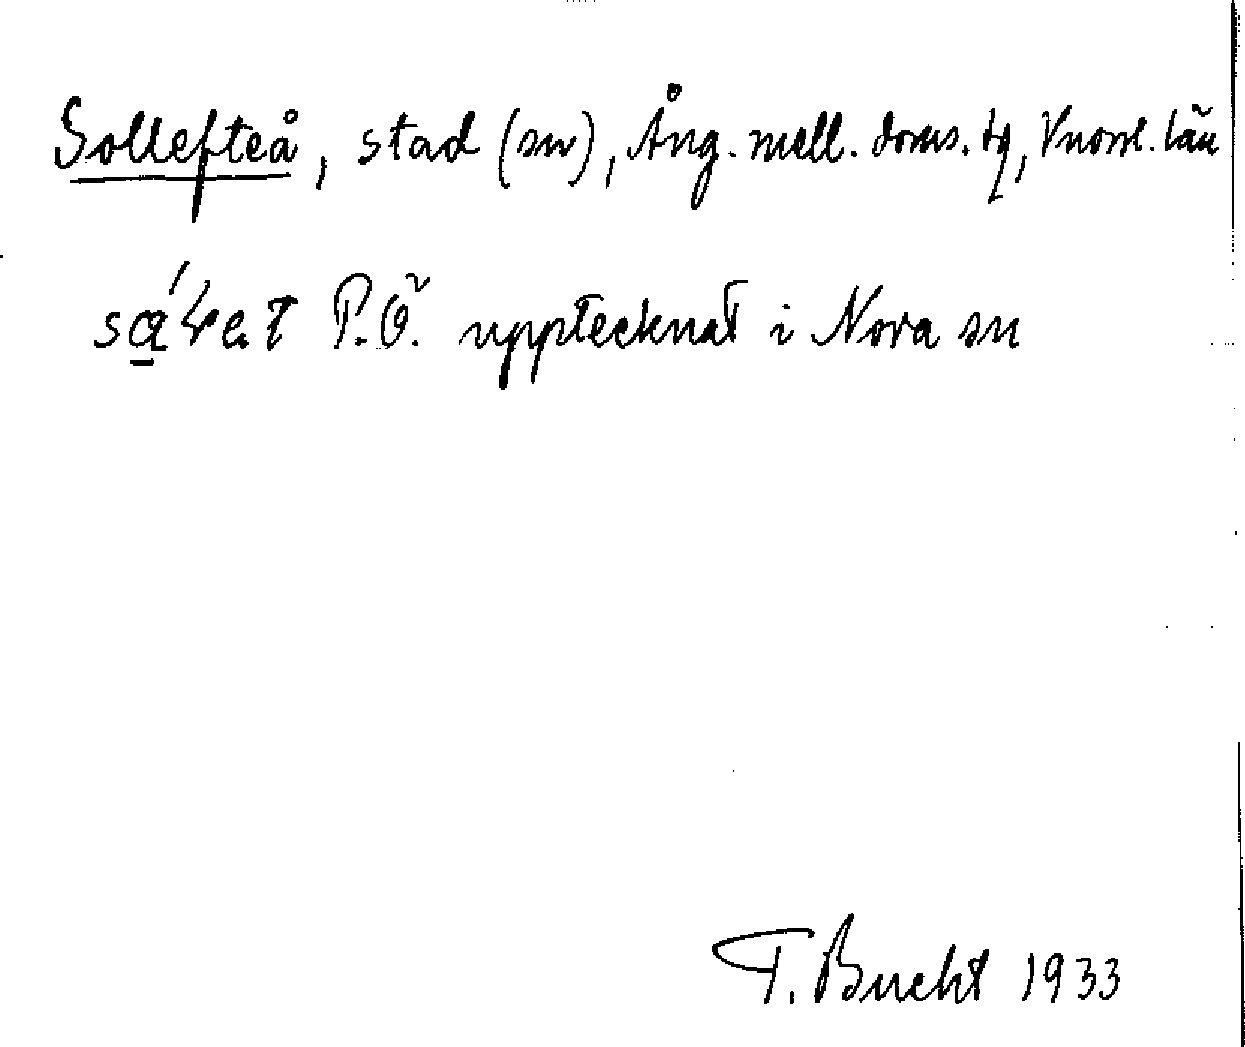 Sollefteå, stad (sn), Ång. mell. doms. tg, Vnorrl. län
P.Ö. upptecknat i Nora sn
T. Bucht 1933